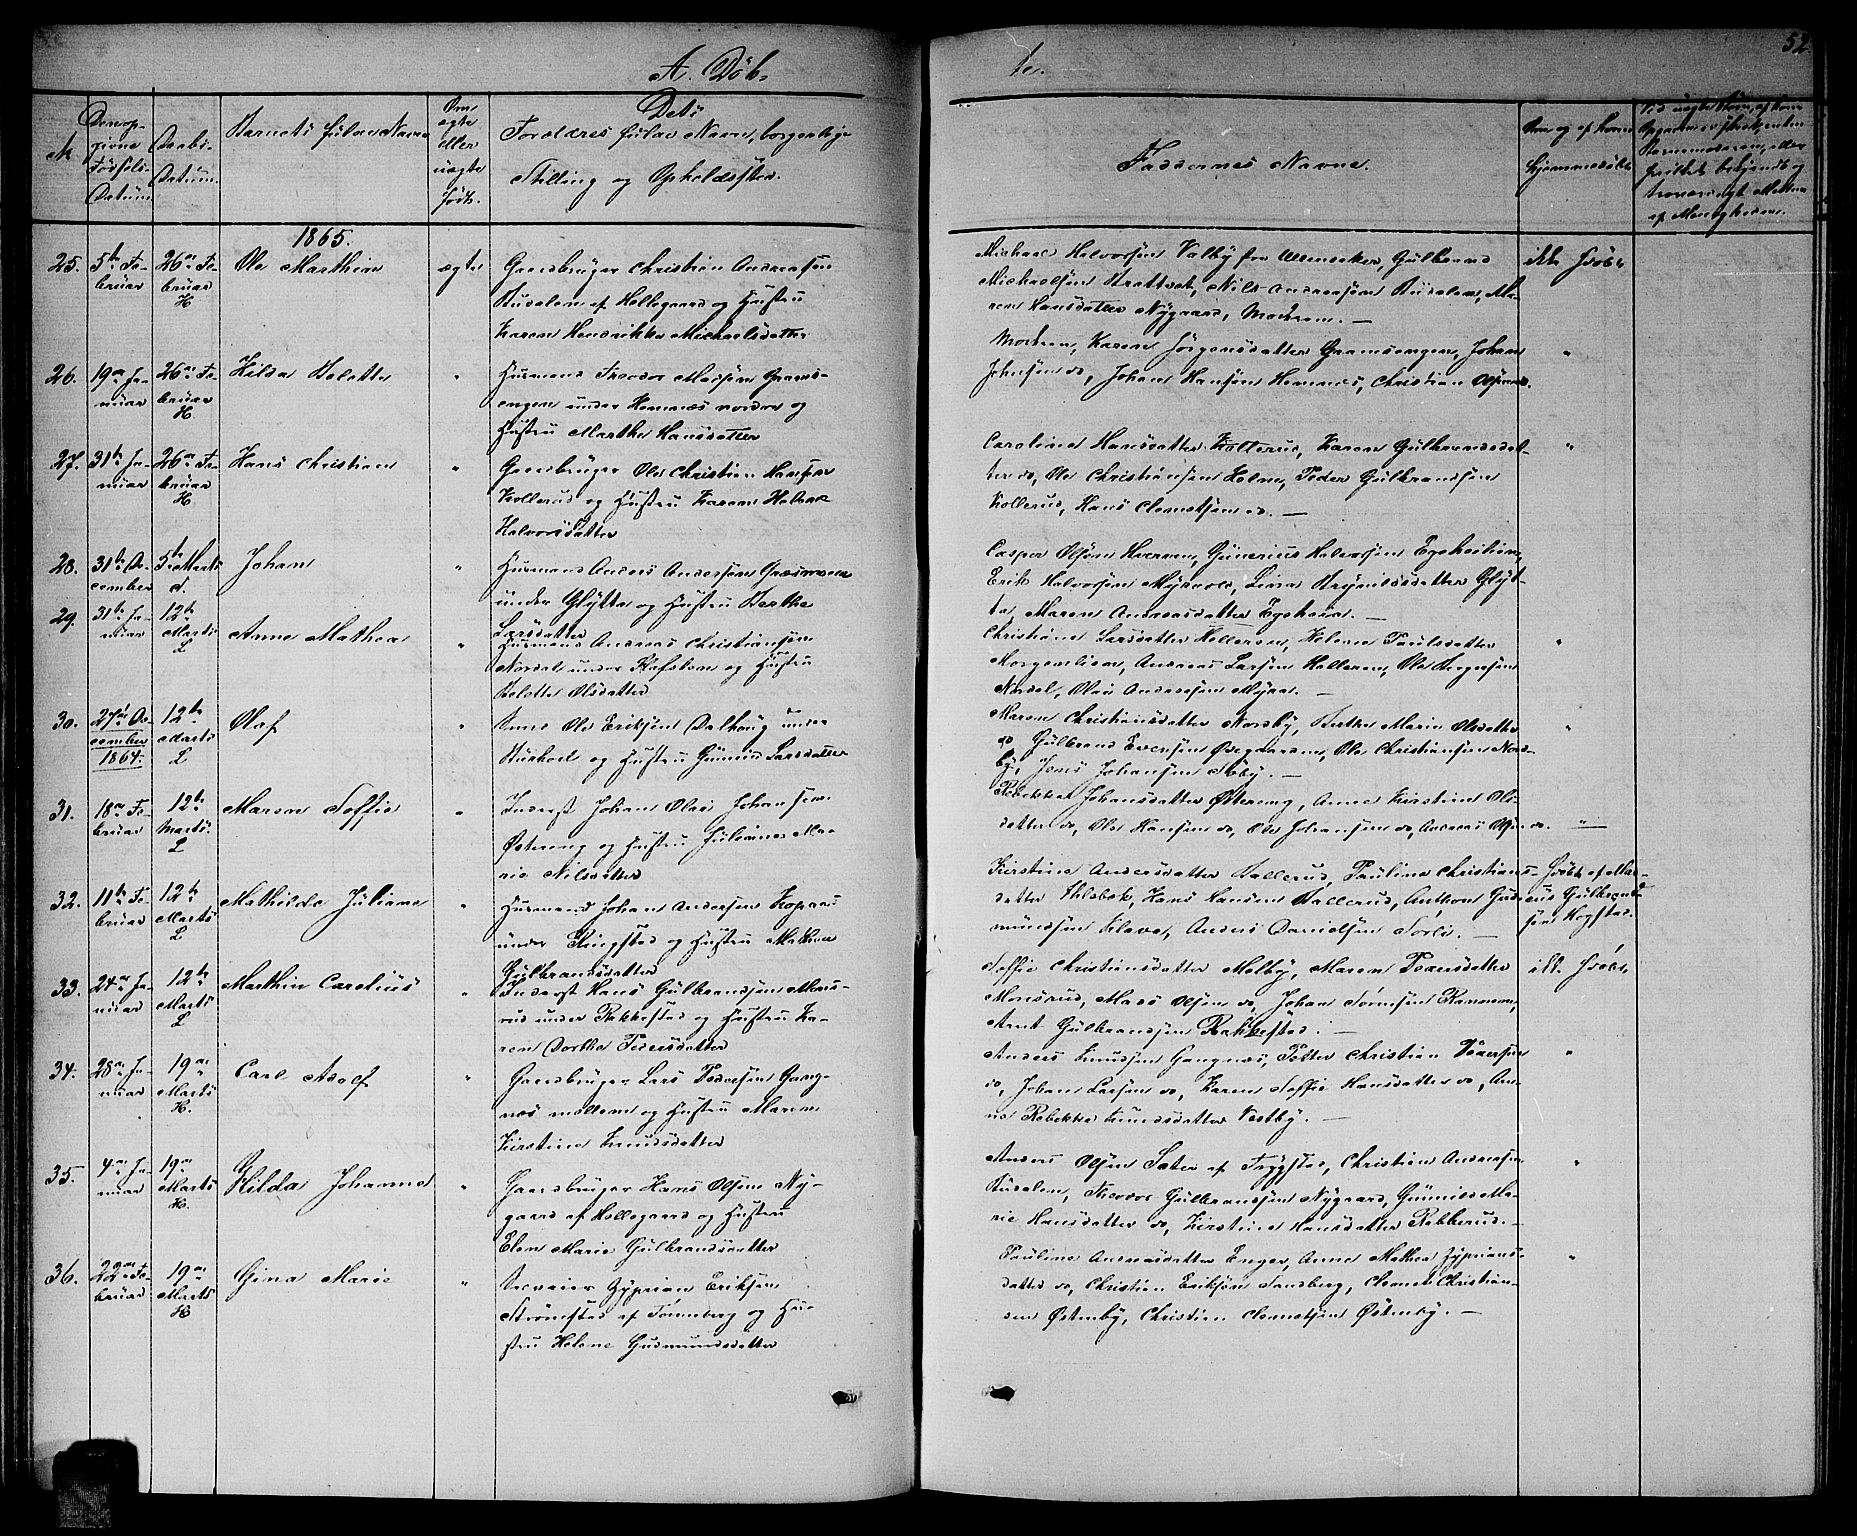 52.
A. Döb-
te.
№
Den op-
givne
Födsels-
Datum.
Daabs-
Datum.
Barnets fulde Navn
Om
ægte
eller
uægte
födt.
Dets
Forældres fulde Navn, borgerlige
Stilling og Opholdssted.
Faddernes Navne.
Om og af hvem
hjemmedöbt
1865.
25. 5te Fe-
bruar
26de Fe-
bruar
H
Ole Marthin
ægte
Gaardbruger Christian Andreasen
Budalen af Hellegaard og Hustru
Karen Hendrikke Michaelsdatter
Michael Halvorsen Valby fra Urenskog, Gulbrand
Michaelsen Brattvet, Nils Andreasen Budalen, Ma-
ren Hansdatter Nygaard, Moderen. —
ikke hjdöbt
26. 19de Ja-
nuar
26de Fe-
bruar
H
Hilda Helette
"
Husmand Theodor Madsen Grans-
engen under Hemnæs nordre og
Hustru Marthe Hansdatter
Moderen, Karen Jörgensdatter Gransengen, Johan
Johnsen do, Johan Hansen Hemnæs, Christian Olsen do.
"
27. 31te Ja-
nuar
26de Fe-
bruar
H
Hans Christian
"
Gaardbruger Ole Christian Hansen
Kollerud og Hustru Karen Helene
Halvorsdatter
Caroline Hansdatter Kollerud, Karen Gulbrandsdat-
ter do, Ole Christiansen Holm, Peder Gulbrandsen
Kollerud, Hans Clemetsen do. —
"
28. 31te De-
cember
5te Marts
Johan
"
Husmand Anders Andersen Græsmoen
under Glytte og Hustru Berthe
Larsdatter
Casper Olsen Hveruen, Gunerius Halvorsen Egeheim,
Erik Halvorsen Myrvold, Lina Brynildsdatter Glyt-
te, Maren Andreasdatter Egeheim. —
29. 31te Ja-
nuar
12te
Marts
L
Anne Mathea
"
Husmand Andreas Christiansen
Nordal under Kofstem og Hustru
Helette Olsdatter
Christine Larsdatter Halleren, Helene Paulsdatter
Morgenlien, Andreas Larsen Halleren, Ole Torgersen
Nordal, Olai Andersen Myra. —
"
30. 27de De-
cember
1864.
12te
Marts
L
Olof
"
Inds Ole Eriksen Dalhaug under
Burhol og Hustru Gunild Larsdatter
Maren Christiansdatter Nordby, Berthe Marie Olsdatter
do, Gulbrand Evensen Ödegaarden, Ole Christiansen Nord-
by, Jens Johansen Aaby. —
"
31. 18de Fe-
bruar
12te
Marts.
L
Maren Soffie
"
Inderst Johan Olai Johansen
Östereng og Hustru Julianne Ma-
rie Nilsdatter
Rebekka Johansdatter Östereng, Anne Kirstine Ols-
datter do, Ole Hansen do, Ole Johansen do, Andreas Olsen do.
"
32. 11te Fe-
bruar
12te
Marts
L
Mathilde Juliane
"
Husmand Johan Andersen Kopaas
under Ringstad og Hustru Mathea
Gulbrandsdatter
Kirstine Andersdatter Hallerud, Pauline Christians-
datter Ihlebek, Hans Hansen Hallerud, Anthon Gud-
mundsen Kleva, Anders Danielsen Sorli. —
Hjdöbt af Mar-
cus Gulbrand-
sen Kogstad.
33. 24de Ja-
nuar
12te
Marts
L
Marthin Carelius
"
Inderst Hans Gulbrandsen Mons-
rud under Rakkestad og Hustru Ka-
ren Dorthe Pedersdatter
Soffie Christiansdatter Melby, Maren Pedersdatter
Monsrud, Mads Olsen do, Johan Sörensen Rammen,
Arnt Gulbrandsen Rakkestad. —
ikke hjdöbt
34. 28de Ja-
nuar
19de
Marts
H.
Carl Adolf
"
Gaardbruger Lars Pedersen Gang-
næs mellem og Hustru Maren
Kirstine Knudsdatter
Anders Knudsen Gangnæs, Petter Christian Pedersen
do, Johan Larsen do, Karen Soffie Hansdatter do, An-
ne Rebekka Knudsdatter Vestby. —
"
35. 4de Ja-
nuar
19de
Marts
H.
Hilda Johanne
"
Gaardbruger Hans Olsen Ny-
gaard af Hellegaard og Hustru
Elen Marie Gulbrandsdatter
Anders Olsen Sæter af Trygstad, Christian Andreasen
Budalen, Theodor Gulbrandsen Nygaard, Gunnild Ma-
rie Hansdatter do, Kirstine Hansdatter Rakkerud. —
"
36. 22de Fe-
bruar
19de
Marts
H
Gina Marie
"
Zyprian Eriksen
Strömstad af Tönneberg og Hu-
stru Helene Gudmundsdatter
Pauline Andreasdatter Enger, Anne Mathea Zyprians-
datter do, Christian Eriksen Sandberg, Clemet Christian-
sen Östenby, Christian Clemetsen Östenby. —
"